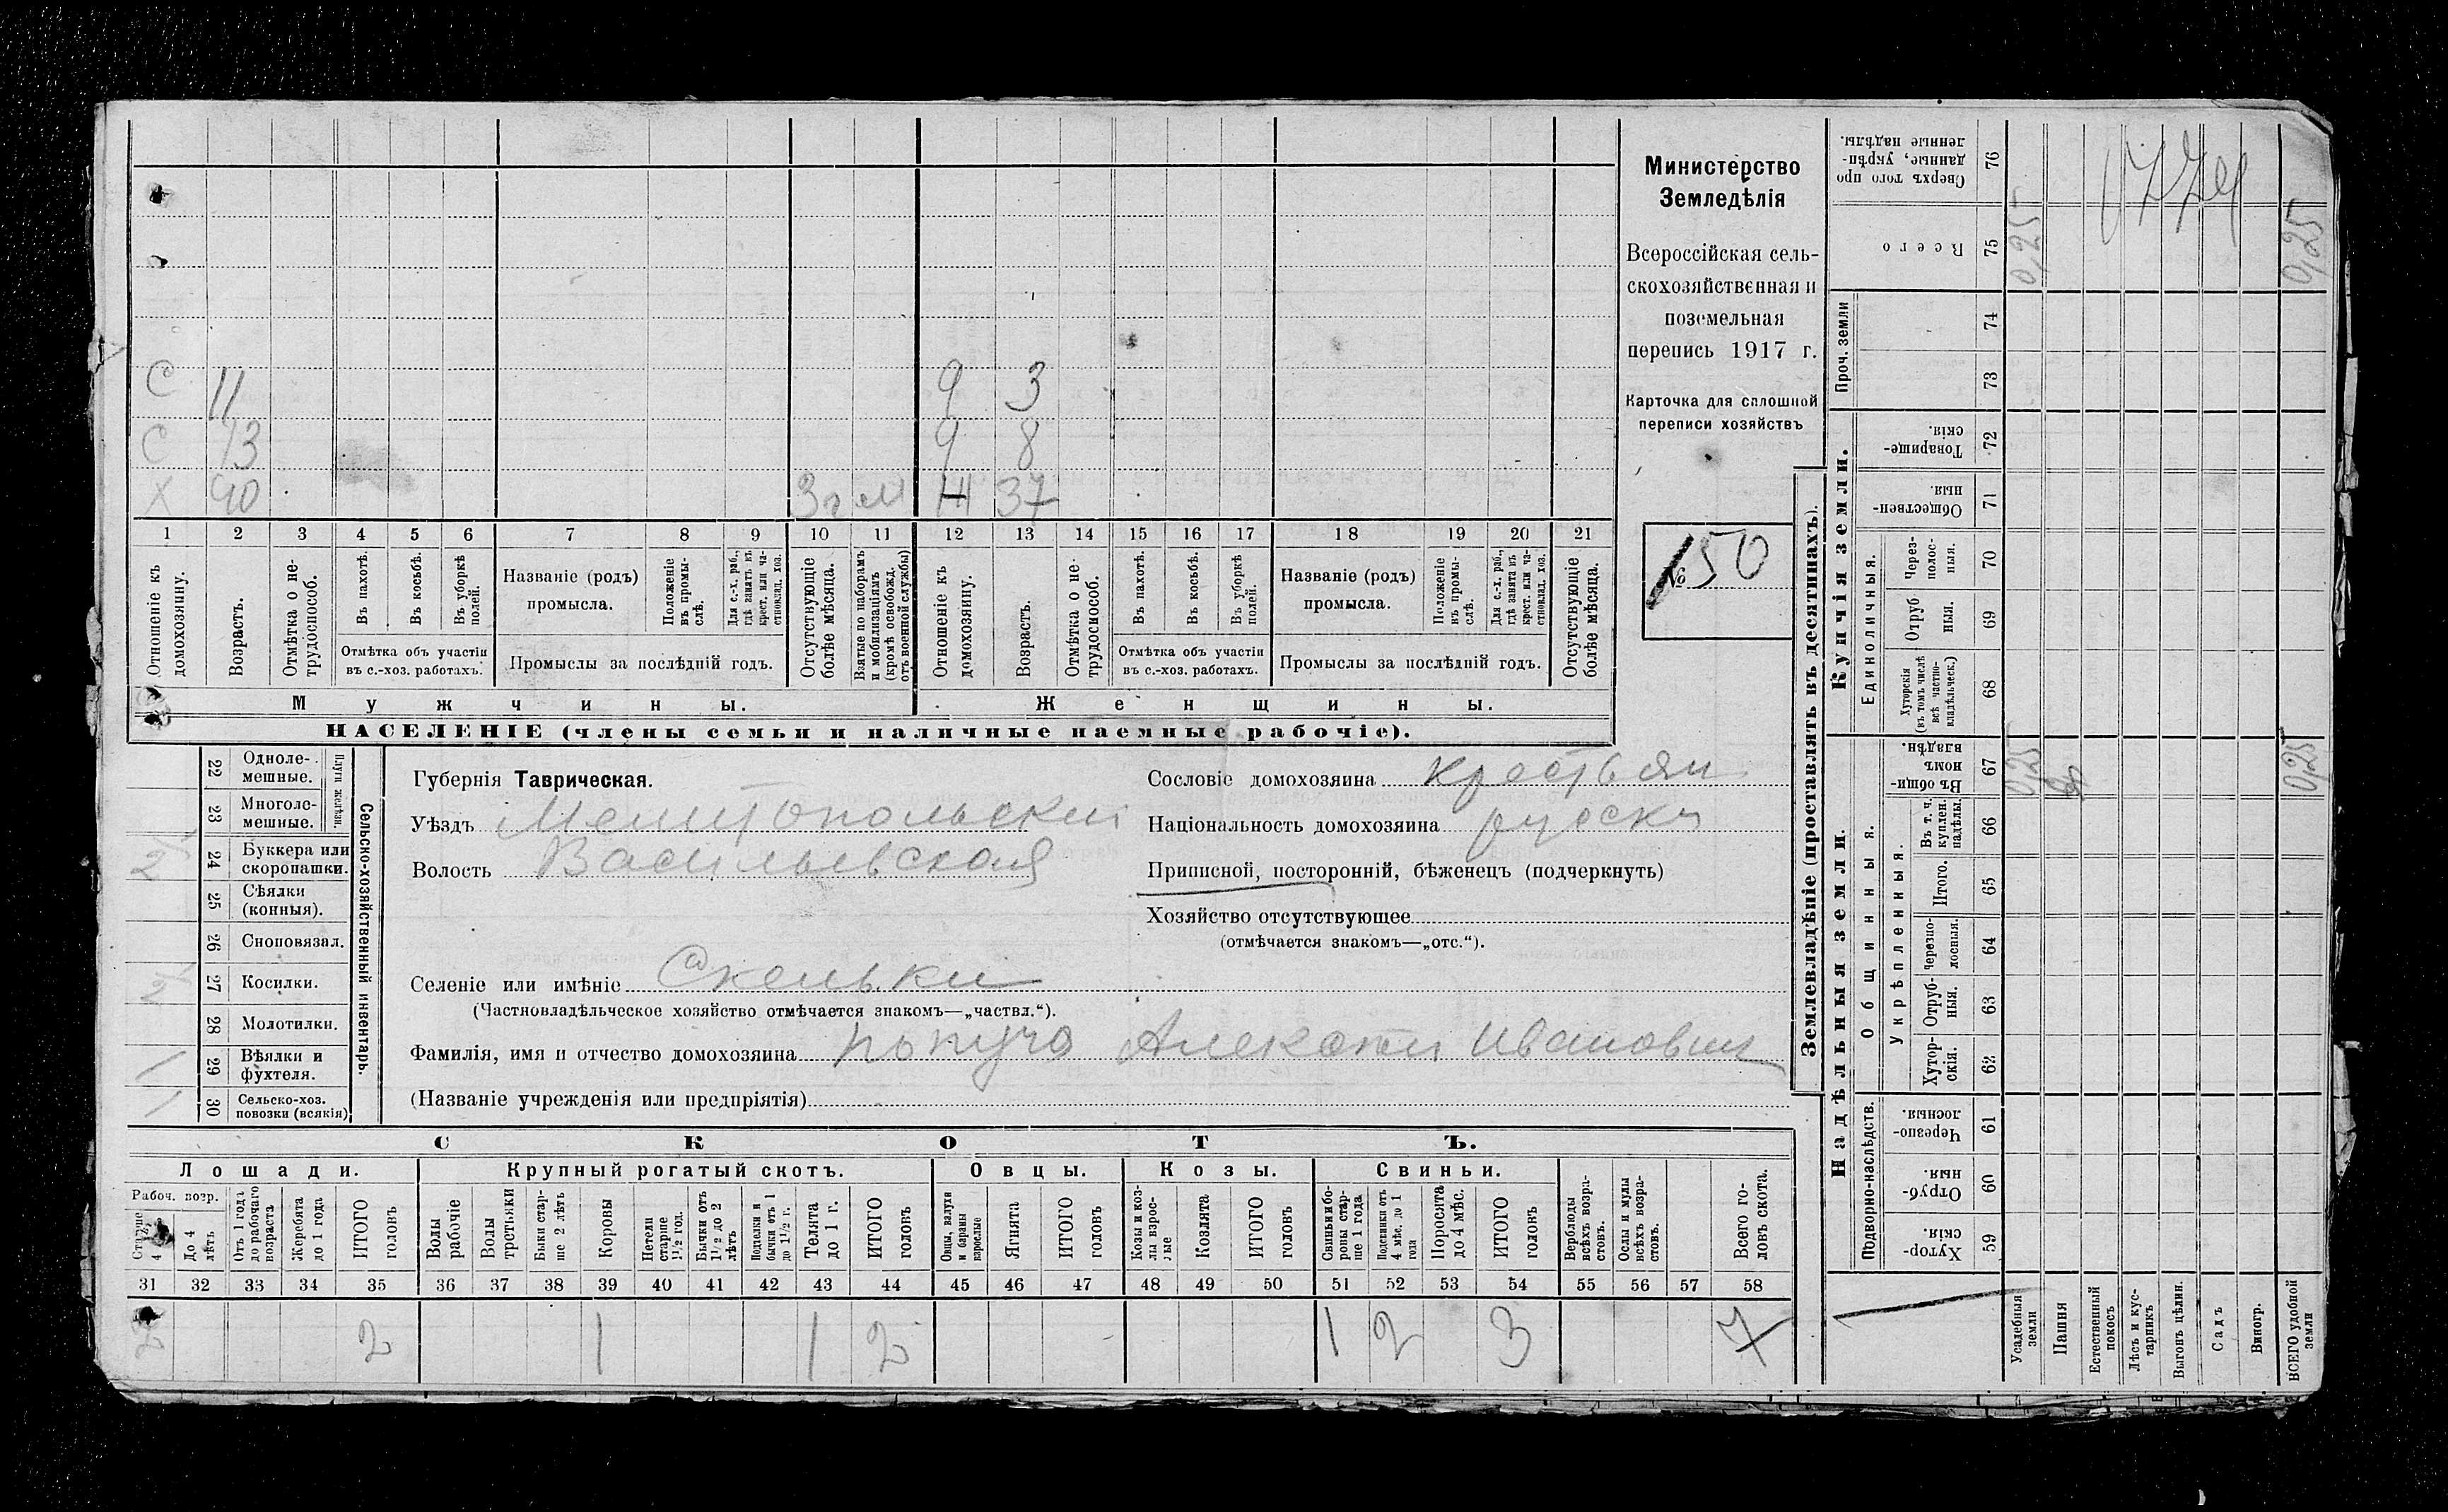 С 11 9 3
С 13 9 8
Х 40 3 г м 37
1 2 3 4 5 6 7 8 9 10 11 12 13 14 15 16 17 18 19 20 21
Отношеніе къ домохозяину.
Возрастъ.
Отмѣтка о не-
трудоспособ.
Въ пахотѣ.
Въ косьбѣ.
Въ уборкѣ
полей.
Отмѣтка объ участіи
въ с.-хоз. работахъ.
Названіе (родъ)
промысла.
Положеніе
въ промы-
слѣ.
Для с.-х. раб.,
гдѣ занятъ въ
крест. или ча-
стновлад. хоз.
Промыслы за послѣдній годъ.
Отсутствующіе
болѣе мѣсяца.
Взятые по наборамъ
и мобилизаціямъ
(кромѣ освобожд.
отъ военной службы)
Отношеніе къ
домохозяину.
Возрастъ.
Отмѣтка о не-
трудоспособ.
Въ пахотѣ.
Въ косьбѣ.
Въ уборкѣ
полей.
Отмѣтка объ участіи
въ с.-хоз. работахъ.
Названіе (родъ)
промысла.
Положеніе
въ промы-
слѣ.
Для с.-х. раб.,
гдѣ занята въ
крест. или ча-
стновлад. хоз.
Промыслы за послѣдній годъ.
Отсутствующіе
болѣе мѣсяца.
Мужчины.
Женщины.
НАСЕЛЕНІЕ (члены семьи и наличные наемные рабочіе).
Министерство
Земледѣлія
Всероссійская сель-
скохозяйственная и
поземельная
перепись 1917 г.
Карточка для сплошной
переписи хозяйствъ
№ 50
22 Одноле-
мешные.
23 Многоле-
мешные.
Плуги желѣзн.
2 24 Буккера или
скоропашки.
25 Сѣялки
(конныя).
26 Сноповязал.
2 27 Косилки.
28 Молотилки.
1 29 Вѣялки и
фухтеля.
1 30 Сельско-хоз.
повозки (всякія)
Сельско-хозяйственный инвентарь.
Губернія Таврическая.
Уѣздъ Мелитопольский
Волость Васильевская
Селеніе или имѣніе Скельки
(Частновладѣльческое хозяйство отмѣчается знакомъ—„частвл.“).
Фамилія, имя и отчество домохозяина Алексей Иванович
(Названіе учрежденія или предпріятія)
Сословіе домохозяина крестьян
Національность домохозяина руски
Приписной, посторонній, бѣженецъ (подчеркнуть)
Хозяйство отсутствующее
(отмѣчается знакомъ—„отс.“).
СКОТЪ.
Лошади.
Крупный рогатый скотъ.
Овцы.
Козы.
Свиньи.
Рабоч. возр.
Старше
4
До 4
лѣтъ
Отъ 1 года
до рабочаго
возраста
Жеребята
до 1 года
ИТОГО
головъ
Волы
рабочіе
Волы
третьяки
Быки стар-
ше 2 лѣтъ
Коровы
Нетели
старше
1½ год.
Бычки отъ
1½ до 2
лѣтъ
Подтелки и
бычки отъ 1
до 1½ г.
Телята
до 1 г.
ИТОГО
головъ
Овцы, валухи
и бараны
взрослые
Ягнята
ИТОГО
головъ
Козы и коз-
лы взрос-
лые
Козлята
ИТОГО
головъ
Свиньи и бо-
ровы стар-
ше 1 года
Подсвинки отъ
4 мѣс. до 1
года
Поросята
до 4 мѣс.
ИТОГО
головъ
Верблюды
всѣхъ возра-
стовъ.
Ослы и мулы
всѣхъ возра-
стовъ.
Всего го-
ловъ скота.
31 32 33 34 35 36 37 38 39 40 41 42 43 44 45 46 47 48 49 50 51 52 53 54 55 56 57 58
2 2 1 1 2 1 2 3 7
Землевладѣніе (проставлять въ десятинахъ).
Надѣльныя земли.
Купчія земли.
Проч. земли
Подворно-наслѣдств.
Общинныя.
Укрѣпленныя.
Единоличныя.
Сверхъ того про
данные, укрѣп-
ленные надѣлы.
76
Всего
75
74
73
Товарище-
скія.
72
Обществен-
ныя.
71
Через-
полос-
ныя.
70
Отруб
ныя.
69
Хуторскія
(въ томъ числѣ
всѣ частно-
владѣльческ.)
68
Въ общи-
номъ
владѣн.
67
Въ т. ч.
куплен.
надѣлы.
66
Итого.
65
Черезпо-
лосныя.
64
Отруб-
ныя.
63
Хутор-
скія.
62
Черезпо-
лосныя.
61
Отруб-
ныя.
60
Хутор-
скія.
59
Усадебныя
земли
Пашня
Естественный
покосъ
Лѣсъ и кус-
тарникъ
Выгонъ цѣлин.
Садъ
Виногр.
ВСЕГО удобной
земли
0,25
0,25
0,25
0,25